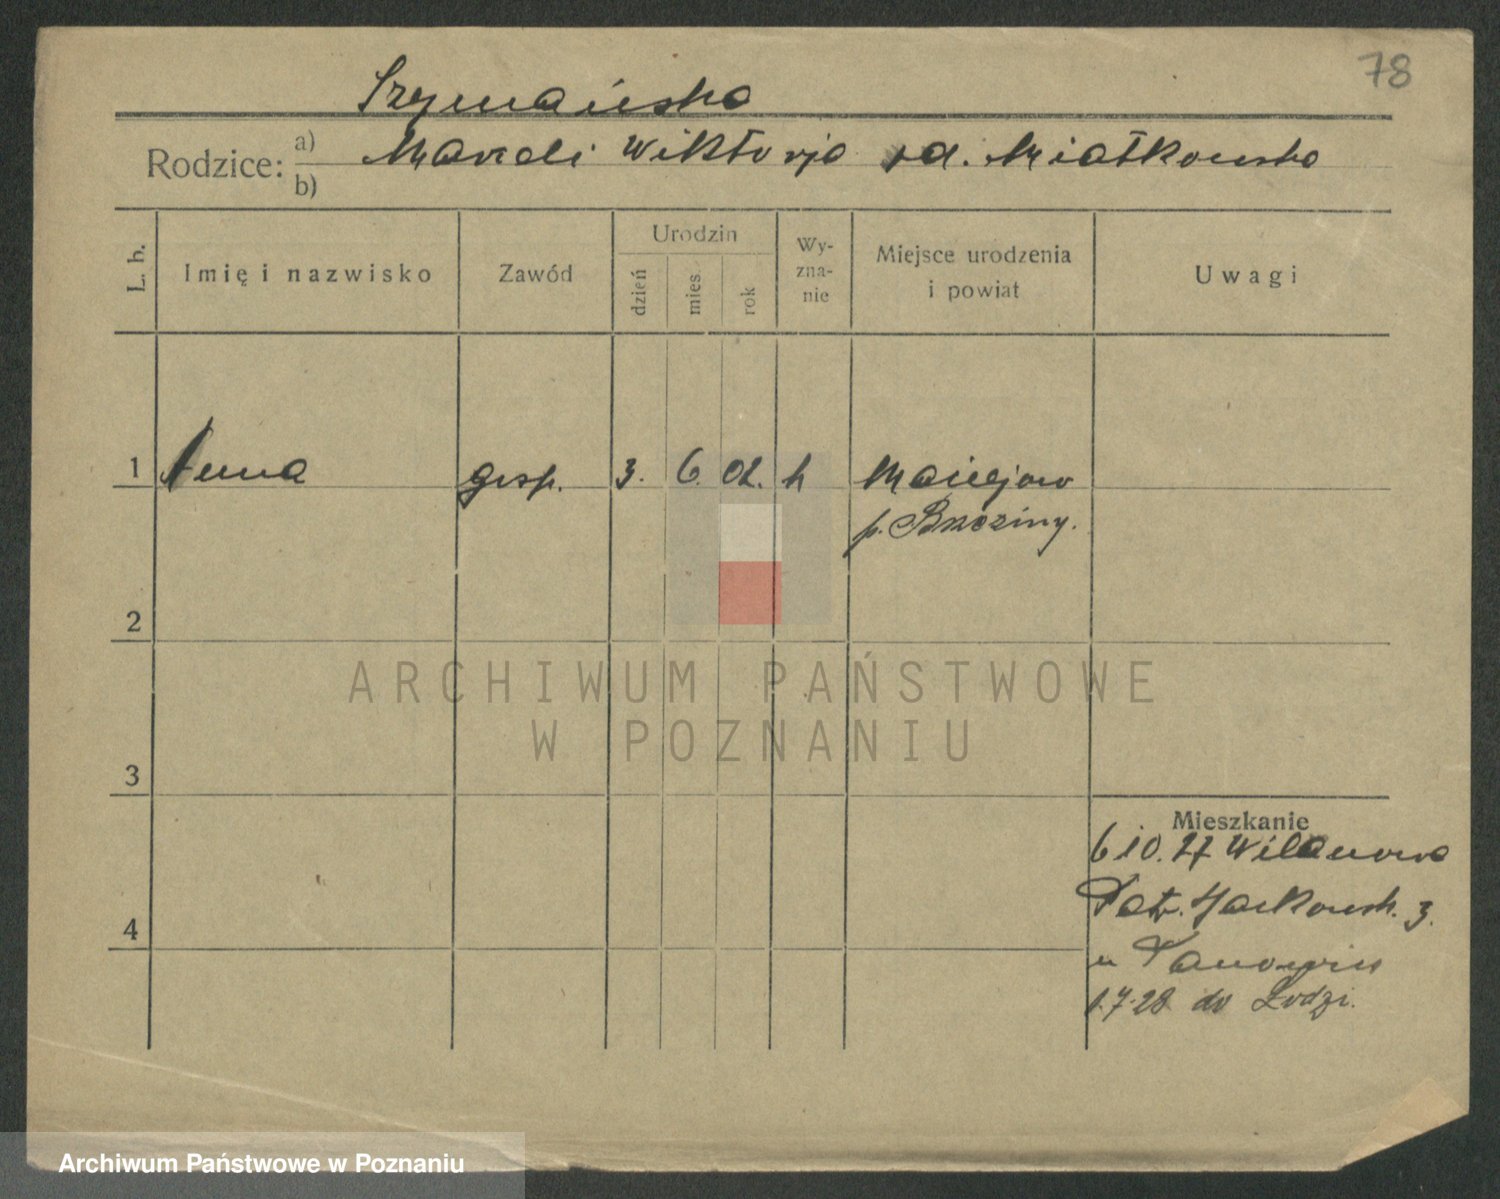 78
Szymańska
Rodzice: a) Marceli Wiktorja zd. Miałkowska
b)
L. b.
Imię i nazwisko
Zawód
Urodzin
dzień
mies.
rok
Wy-
zna-
nie
Miejsce urodzenia
i powiat
Uwagi
1 Anna gosp. 3. 6. 02. k Maciejow
p. Brzeziny.
2
3
4
Mieszkanie
6 10. 27 Wilanowa
Patr. Jackowsk. 3.
u
1.7.28 do Łodzi.
ARCHIWUM PAŃSTWOWE
W POZNANIU
Archiwum Państwowe w Poznaniu